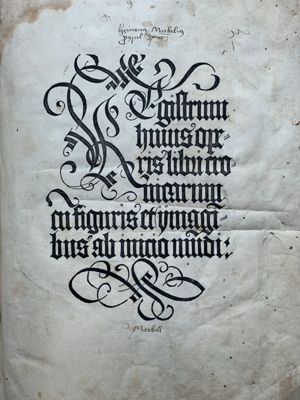 Registrum
huius ope=
ris libri cro
nicarum
cū figuris et ymagi=
bus ab inicio mūdi: